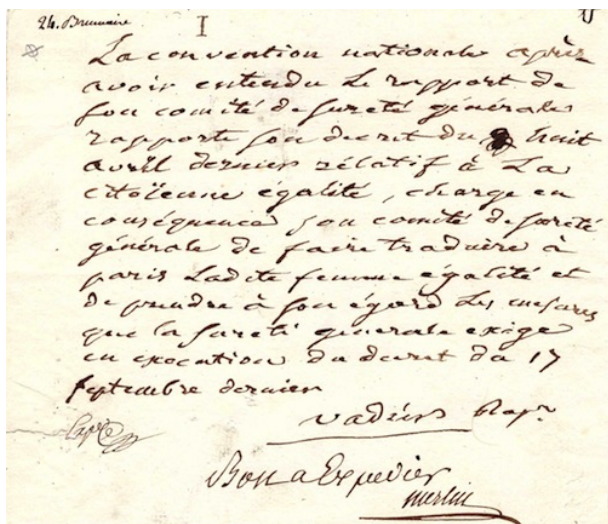 24. Brumaire I
La convention nationale après
avoir entendu Le rapport de
son comité de sureté générale
rapporte son decret du huit
avril dernier rélatif à La
citoïenne égalité, charge en
conséquence son comité de sureté
générale de faire traduire à
paris Ladite femme égalité et
de prendre à son égard Les mesures
que la sureté générale exige
en execution du decret du 17
septembre dernier
Rapr.
Bon a Expedier
merlin